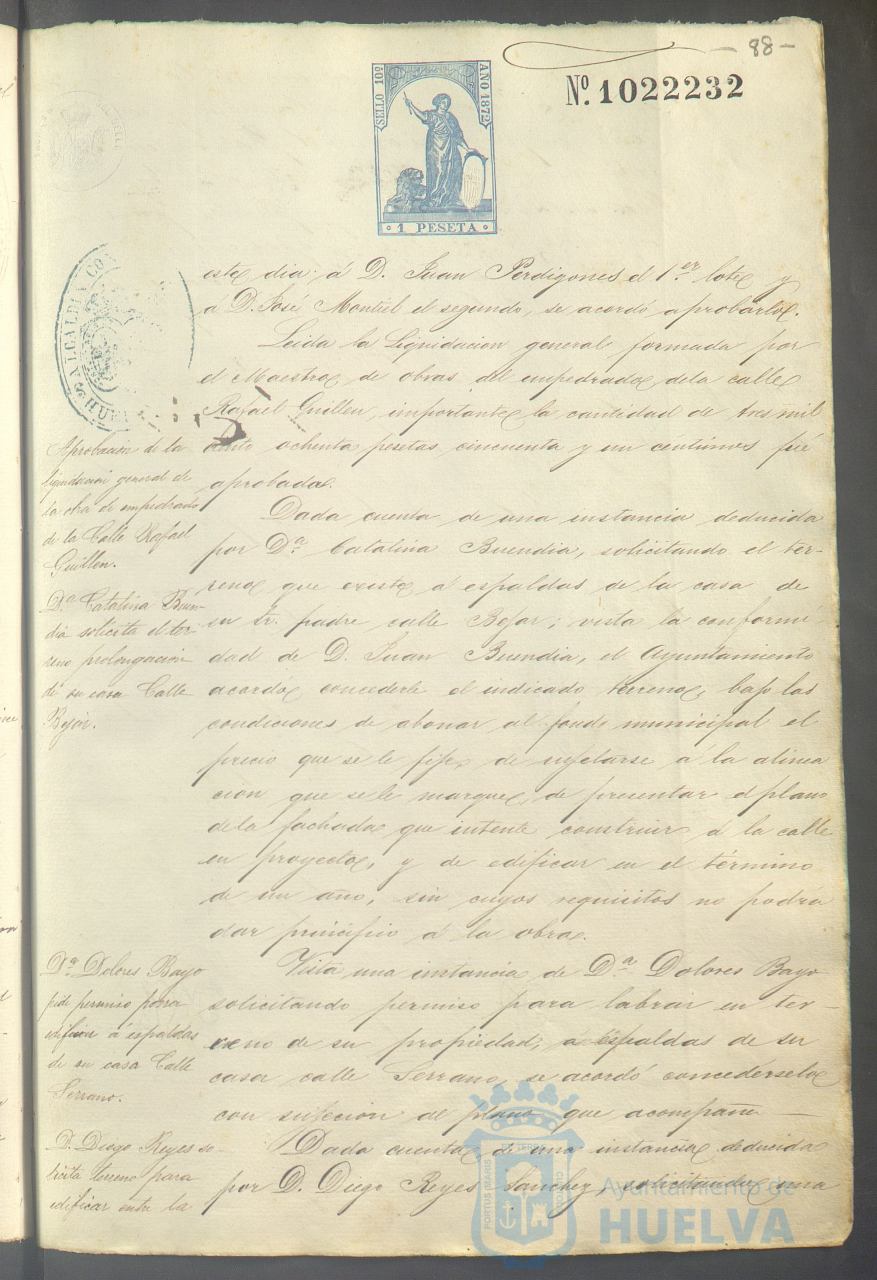 - 88 -
SELLO 10º
AÑO 1872
Nº. 1022232
· 1 PESETA ·
ALCALDIA CO
HUE
este dia: á D. Juan Perdigones el 1.er lote y
a D. José Montiel el segundo, se acordó aprobarlo.
Leida la liquidacion general formada por
el Maestro de obras del empedrado de la calle
Rafael Guillen, importante la cantidad de tres mil
ciento ochenta pesetas cincuenta y un centimos fué
aprobada.
Aprobacion de la
liquidacion general de
la obra de empedrado
de la Calle Rafael
Guillen.
Dada cuenta de una instancia deducida
por Dª. Catalina Buendia, solicitando el ter-
reno que existe a espaldas de la casa de
su Sr. padre calle Bejar; vista la conformi
dad de D. Juan Buendia, el Ayuntamiento
acordó concederle el indicado terreno, bajo las
condiciones de abonar al fondo municipal el
precio que se le fije, de sujetarse á la alinea
cion que se le marque, de presentar el plano
de la fachada que intente construir á la calle
en proyecto, y de edificar en el término
de un año, sin cuyos requisitos no podrá
dar principio á la obra.
Dª. Catalina Buen-
dia solicita el ter
reno prolongacion
de su casa Calle
Bejar.
Vista una instancia de Dª. Dolores Bayo
solicitando permiso para labrar en ter-
reno de su propiedad, a espaldas de su
casa calle Serrano, se acordó concederselo
con sujecion al plano que acompaña
Dª. Dolores Bayo
pide permiso para
edificar á espaldas
de su casa Calle
Serrano.
Dada cuenta de una instancia deducida
por D. Diego Reyes Sanchez, solicitando una
D. Diego Reyes so-
licita terreno para
edificar entre la
PORTUS MARIS
ET TERRÆ
CUSTODIO
Ayuntamiento de
HUELVA